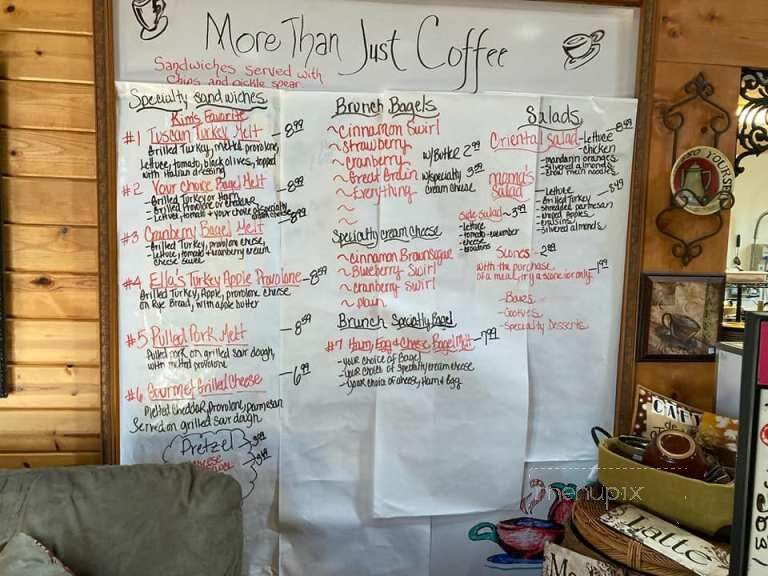 More Than Just Coffee
Sandwiches served with
Chips and pickle spear
Specialty sandwiches
Kim's Favorite
#1 Tuscan Turkey Melt - 8.99
Grilled Turkey, melted provolone,
Lettuce, tomato, black olives, topped
with Italian dressing
#2 Your choice Bagel Melt - 8.99
- Grilled Turkey or Ham
- Grilled Provolone or cheddar
- Lettuce, tomato + your choice of specialty
cream cheese
#3 Cranberry Bagel Melt
- Grilled Turkey, provolone cheese,
- Lettuce, tomato + cranberry cream
cheese
#4 Ella's Turkey Apple Provolone - 8.59
Grilled Turkey, Apple, provolone cheese
on Rye Bread, with apple butter
#5 Pulled Pork Melt - 8.59
Pulled pork on grilled sour dough,
with melted provolone
#6 Gourmet Grilled Cheese - 6.99
Melted cheddar, provolone, parmesan
Served on grilled sour dough
Pretzel
cheese
Brunch Bagels
~ Cinnamon Swirl
~ Strawberry
~ Cranberry
~ Great Grain
~ Everything
~
~
~
w/ Butter 2.99
w/ specialty 3.99
cream cheese
Specialty cream cheese
~ Cinnamon Brown Sugar
~ Blueberry Swirl
~ cranberry swirl
~ plain
Brunch Specialty Bagel
#7 Ham, Egg & Cheese Bagel Melt - 7.99
- your choice of Bagel
- your choice of specialty cream cheese
- your choice of cheese, Ham & Egg
Salads
Oriental Salad - lettuce 8.49
- chicken
- mandarin oranges
- slivered almonds
- chow mein noodles
Mama's Salad
- Lettuce - 8.49
- Grilled Turkey
- shredded parmesan
- chopped apples
- craisins
- slivered almonds
side salad - 3.99
- lettuce
- tomato - cucumber
- cheese
- croutons
Scones - 2.99
with the purchase
of a meal, try a scone for only - 1.99
- Bars
- Cookies
- Specialty Desserts
menupix
CAFÉ
de
Latte